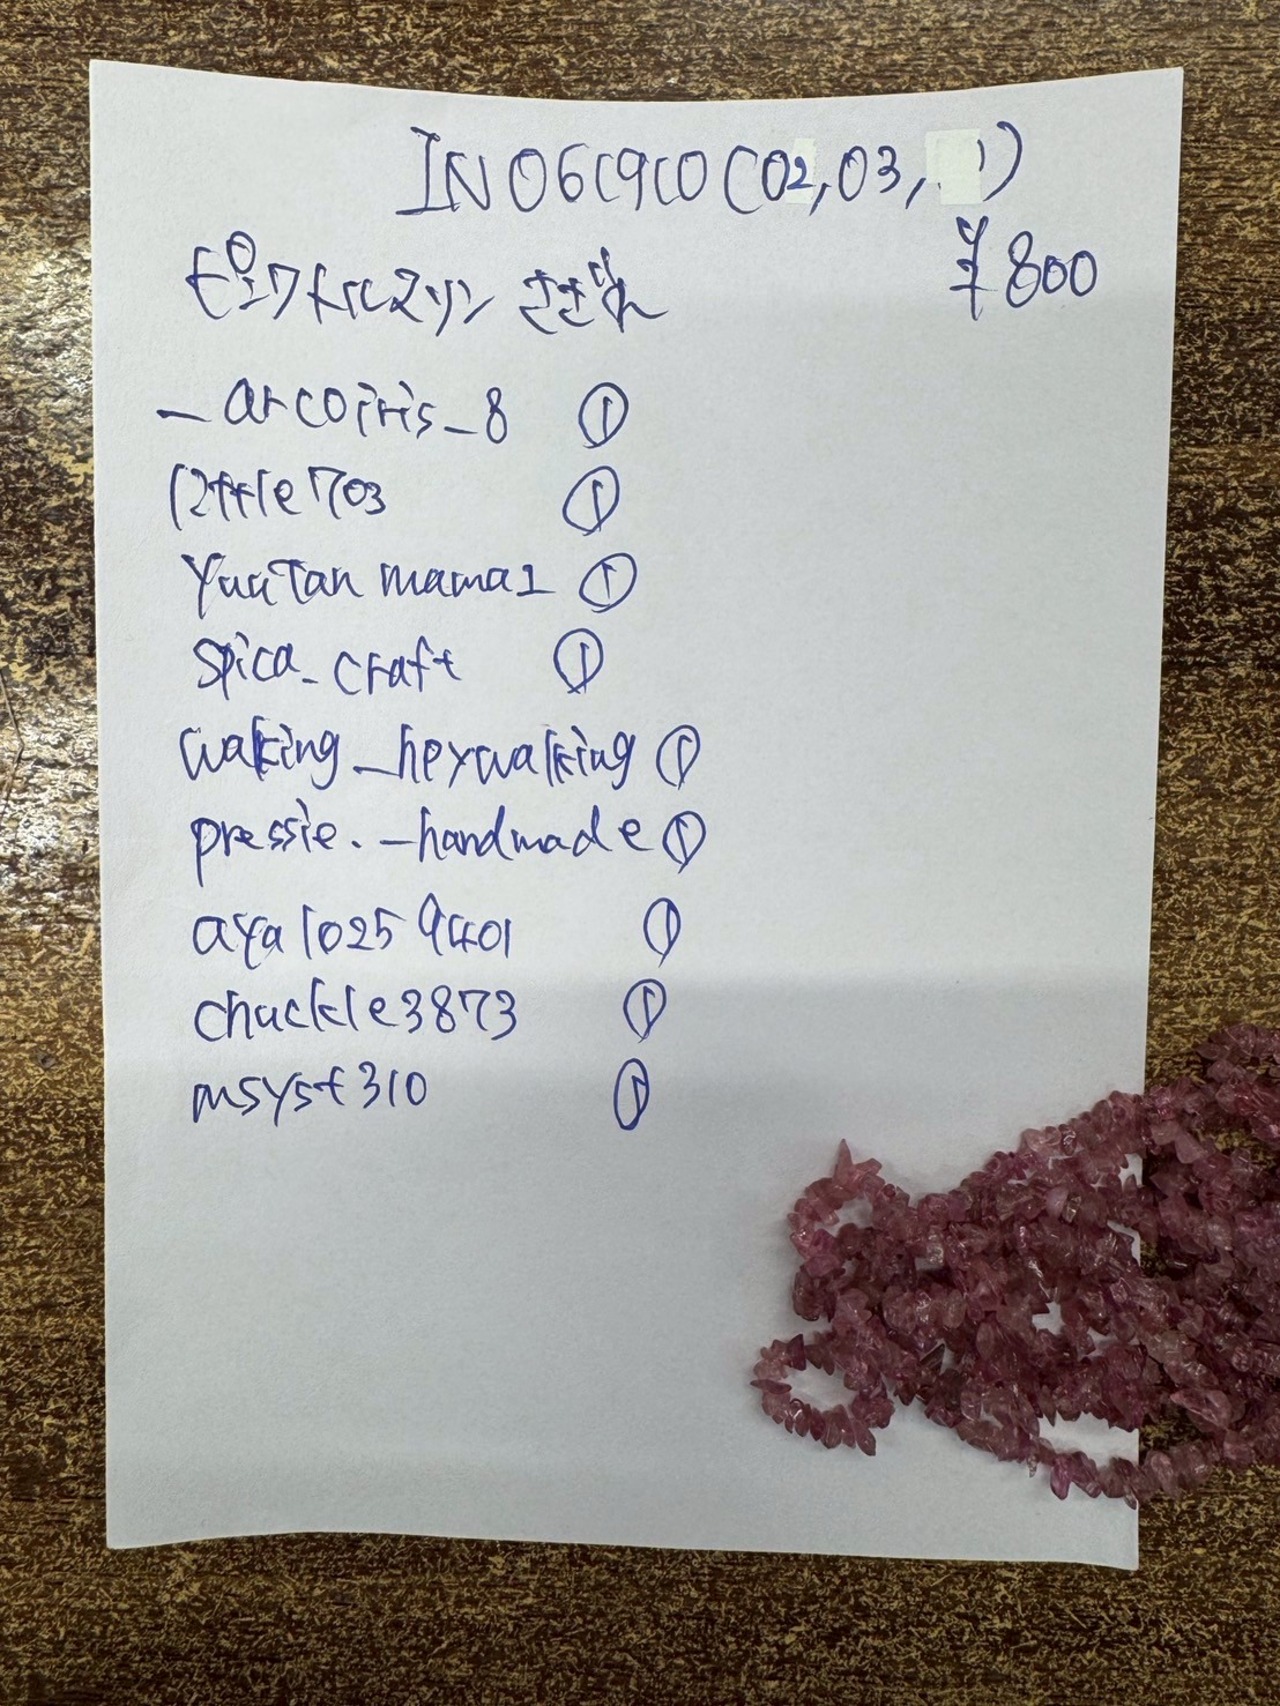 IN061910(02,03, )
¥800
ピンクトルマリン さざれ
_arcoiris_8 ①
little703 ①
Yuutan mama1 ①
spica_craft ①
waking_heywalking ①
pressie._handmade ①
aya10259401 ①
chuckle3873 ①
msyst310 ①